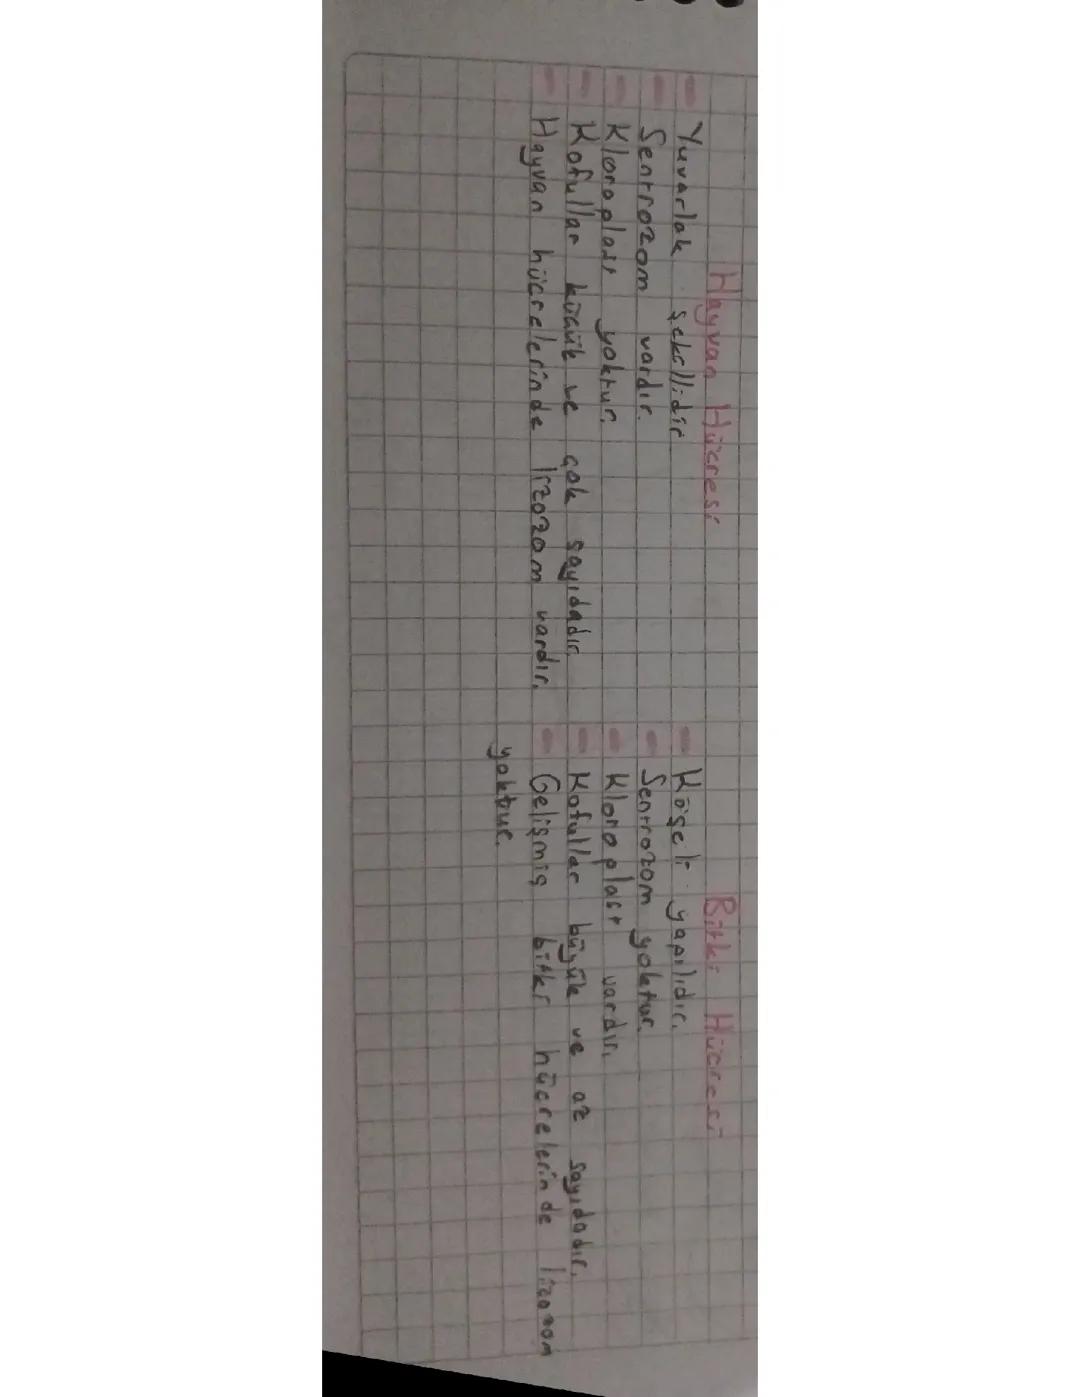 Hayvan Hücresi
Yuvarlak şekillidir
Sentrozom vardır.
Kloroplast yoktur.
Kofullar küçük ve çok sayıdadır.
Hayvan hücrelerinde lizozom vardır.
Bitki Hücresi
Köşeli yapılıdır.
Sentrozom yoktur.
Kloroplast vardır.
Kofullar büyük ve az sayıdadır.
Gelişmiş bitki hücrelerinde lizozom
yoktur.